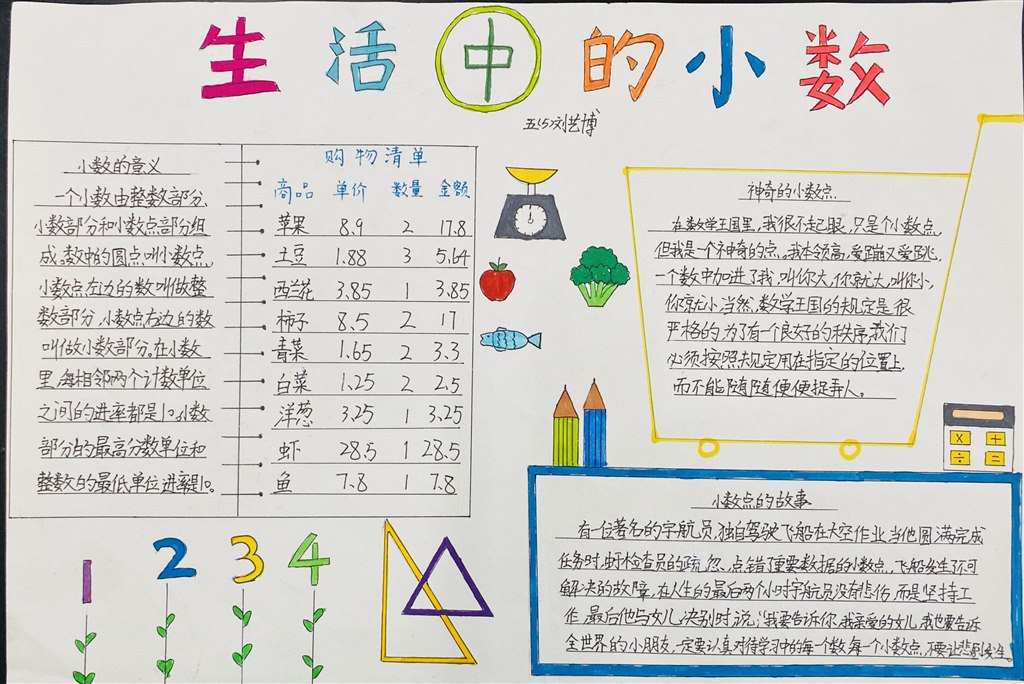 生活中的小数
五(5)刘艺博
小数的意义
一个小数由整数部分、
小数部分和小数点部分组
成,数中的圆点叫小数点,
小数点左边的数叫做整
数部分,小数点右边的数
叫做小数部分。在小数
里,每相邻两个计数单位
之间的进率都是10。小数
部分的最高分数单位和
整数的最低单位进率是10。
购物清单
商品 单价 数量 金额
苹果 8.9 2 17.8
土豆 1.88 3 5.64
西兰花 3.85 1 3.85
柿子 8.5 2 17
青菜 1.65 2 3.3
白菜 1.25 2 2.5
洋葱 3.25 1 3.25
虾 28.5 1 28.5
鱼 7.8 1 7.8
神奇的小数点
在数学王国里,我很不起眼,只是个小数点,
但我是一个神奇的点。我本领高,爱蹦又爱跳,
一个数中加进了我,叫你大,你就大,叫你小,
你就小,当然,数学王国的规定是很
严格的,为了有一个良好的秩序,我们
必须按照规定用在指定的位置上,
而不能随随便便捉弄人。
小数点的故事
有一位著名的宇航员,独自驾驶飞船在太空作业,当他圆满完成
任务时,因检查员的疏忽、点错了重要数据的小数点,飞船发生了不可
解决的故障,在人生的最后两个小时宇航员没有悲伤,而是坚持工
作,最后他与女儿决别时说,“我要告诉你,我亲爱的女儿,我也要告诉
全世界的小朋友,一定要认真对待学习中的每一个数,每一个小数点,不要让悲剧发生。
1 2 3 4
× +
÷ =